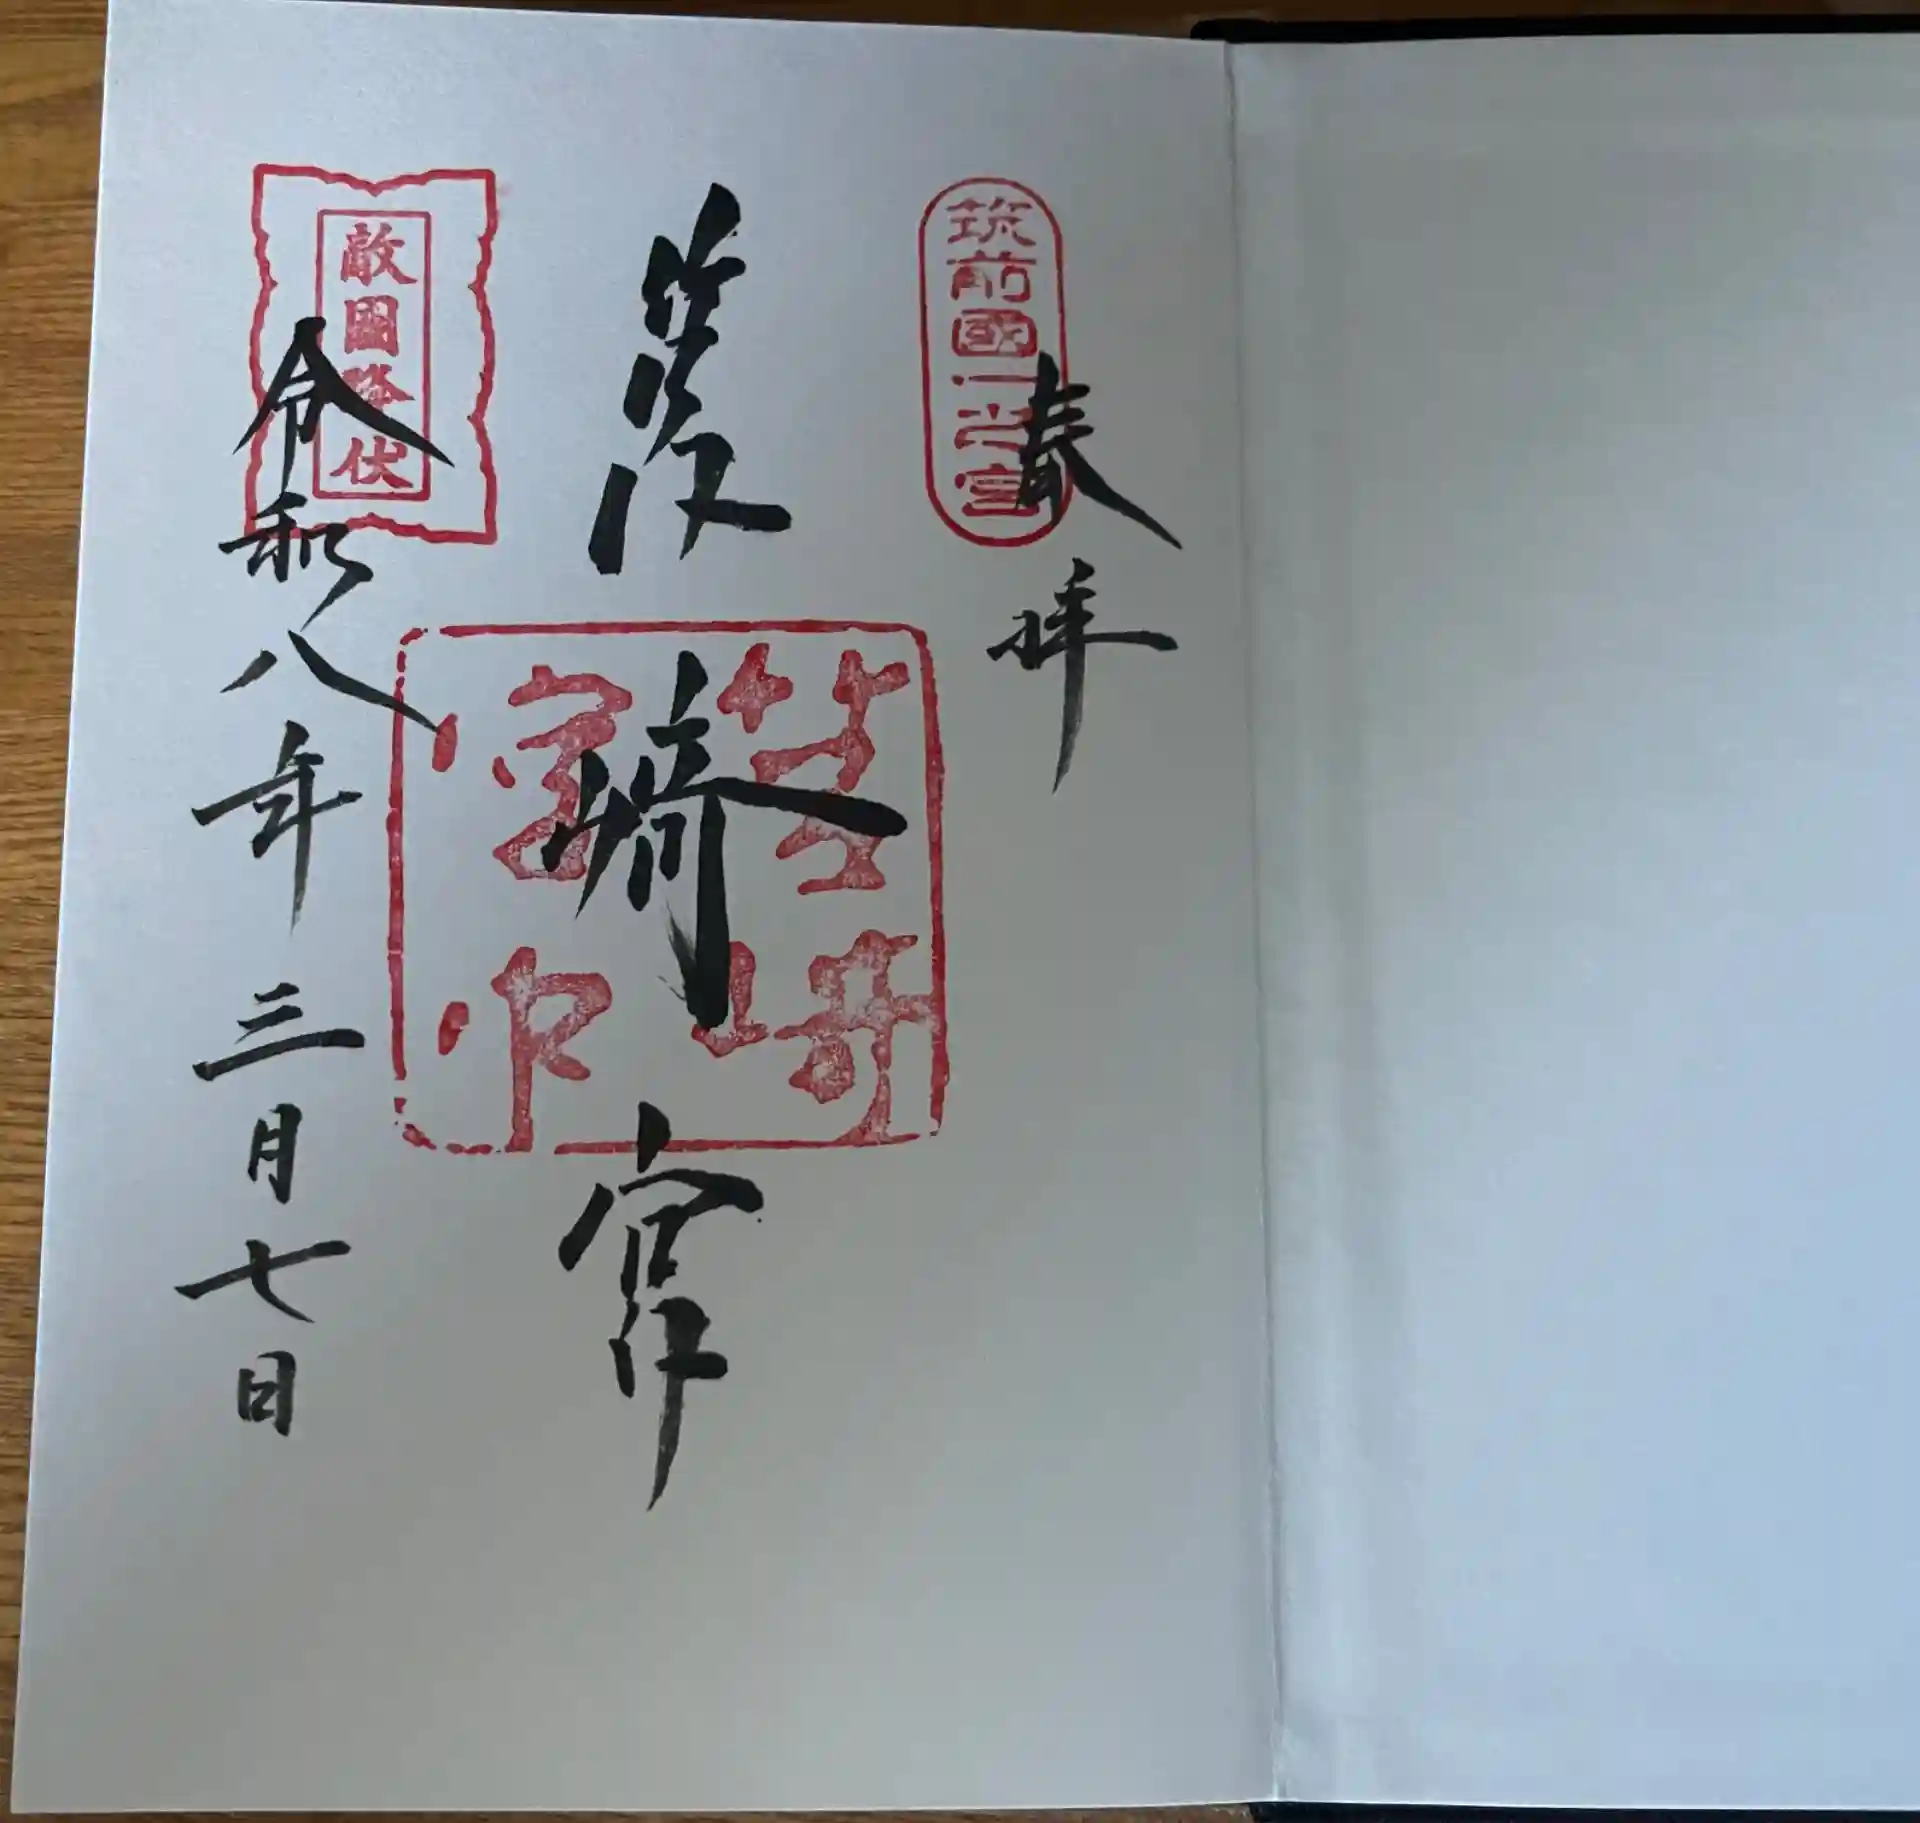 筑前國一之宮
奉拝
筥﨑宮
筥崎
宮印
敵國降伏
令和八年三月七日